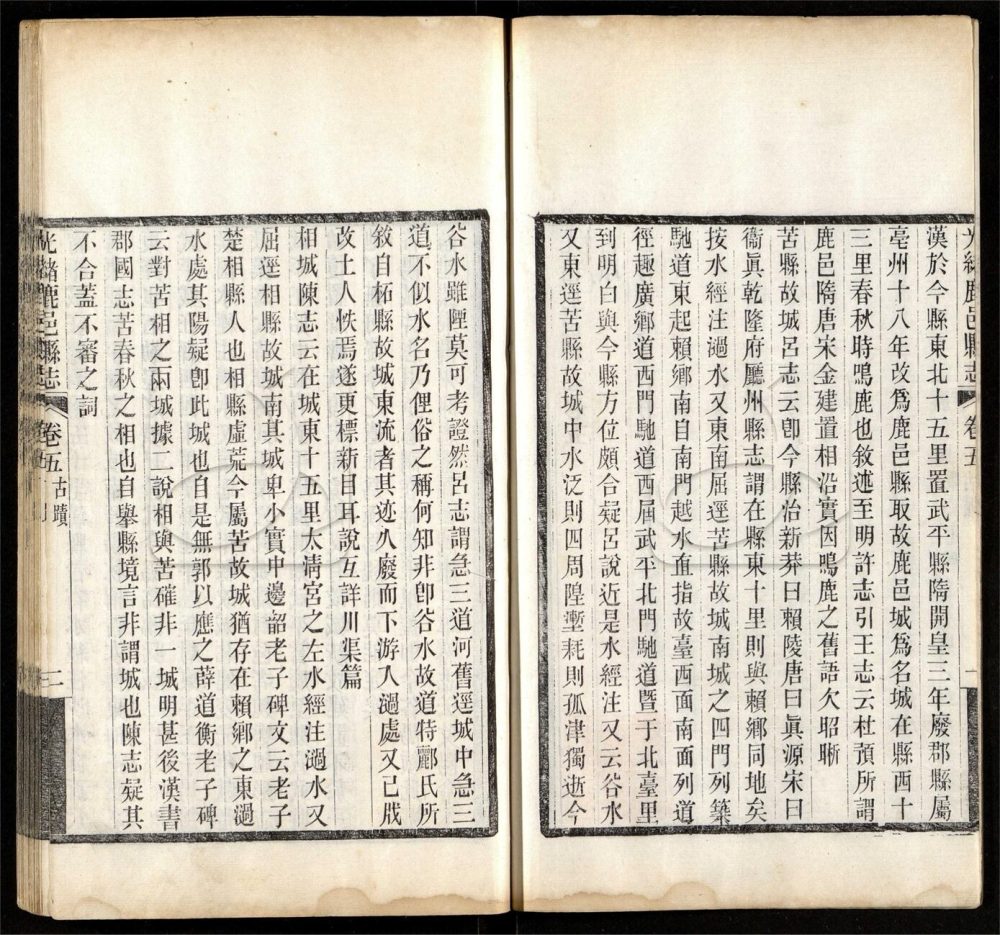 光緒鹿邑縣志 卷五 一
漢於今縣東北十五里置武平縣隋開皇三年廢郡縣屬
亳州十八年改爲鹿邑縣取故鹿邑城爲名城在縣西十
三里春秋時鳴鹿也敘述至明許志引王志云杜預所謂
鹿邑隋唐宋金建置相沿實因鳴鹿之舊語欠昭晰
苦縣故城呂志云卽今縣治新莽曰賴陵唐曰眞源宋曰
衞眞乾隆府廳州縣志謂在縣東十里則與賴鄉同地矣
按水經注濄水又東南屈逕苦縣故城南城之四門列築
馳道東起賴鄉南自南門越水直指故臺西面南面列道
徑趣廣鄉道西門馳道西屆武平北門馳道暨于北臺里
到明白與今縣方位頗合疑呂說近是水經注又云谷水
又東逕苦縣故城中水泛則四周隍壍耗則孤津獨逝今
谷水雖陻莫可考證然呂志謂急三道河舊逕城中急三
道不似水名乃俚俗之稱何知非卽谷水故道特酈氏所
敘自柘縣故城東流者其迹久廢而下游入濄處又已戕
改土人怢焉遂更標新目耳說互詳川渠篇
相城陳志云在城東十五里太清宮之左水經注濄水又
屈逕相縣故城南其城卑小實中邊韶老子碑文云老子
楚相縣人也相縣虛荒今屬苦故城猶存在賴鄉之東濄
水處其陽疑卽此城也自是無郭以應之薛道衡老子碑
云對苦相之兩城據二說相與苦確非一城明甚後漢書
郡國志苦春秋之相也自舉縣境言非謂城也陳志疑其
不合蓋不審之詞
光緒鹿邑縣志 卷五 古蹟 二